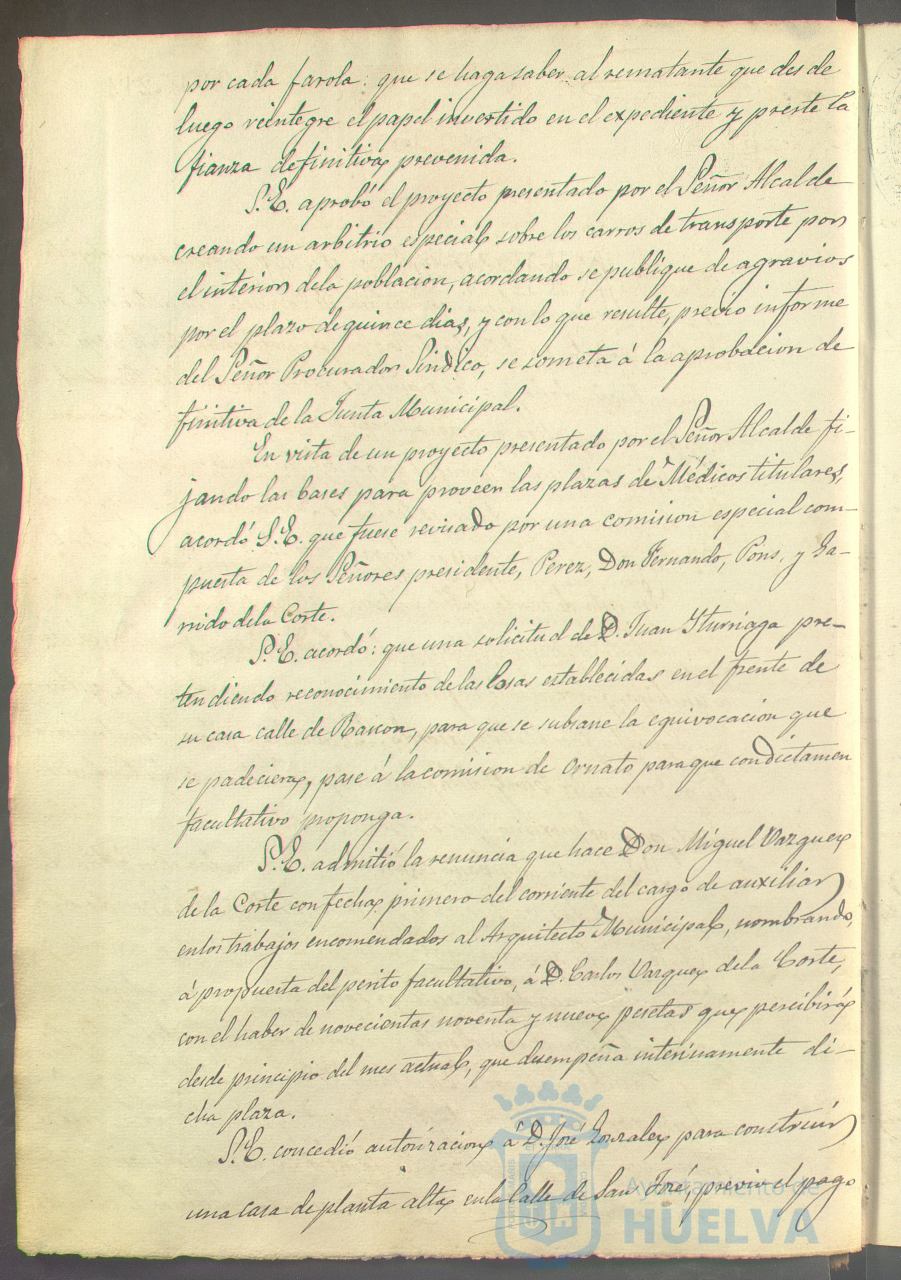 por cada farola: que se haga saber al rematante que des de
luego reintegre el papel invertido en el expediente y preste la
fianza definitiva prevenida.
S.E. aprobó el proyecto presentado por el Señor Alcalde
creando un arbitrio especial sobre los carros de transporte por
el interior de la poblacion, acordando se publique de agravios
por el plazo de quince dias, y con lo que resulte, previo informe
del Señor Procurador Sindico, se someta á la aprobacion de
finitiva de la Junta Municipal.
En vista de un proyecto presentado por el Señor Alcalde fi-
jando las bases para proveer las plazas de Médicos titulares,
acordó S.E. que fuese revisado por una comision especial com-
puesta de los Señores presidente, Perez, Don Fernando, Pons, y Ga-
rrido de la Corte.
S.E. acordó: que una solicitud de D. Juan Yturriaga pre-
tendiendo reconocimiento de las losas establecidas en el frente de
su casa calle de Rascon, para que se subsane la equivocacion que
se padeciera, pase á la comision de Ornato para que con dictamen
facultativo proponga.
S.E. admitió la renuncia que hace Don Miguel Vazquez
de la Corte con fecha primero del corriente del cargo de auxiliar
en los trabajos encomendados al Arquitecto Municipal, nombrando,
á propuesta del perito facultativo, á D. Carlos Vazquez de la Corte,
con el haber de novecientas noventa y nueve pesetas que percibirá
desde principio del mes actual, que desempeña interinamente di-
cha plaza.
S.E. concedió autorizacion á D. José Gonzalez para construir
una casa de planta alta en la Calle de San José, previo el pago
Ayuntamiento de
HUELVA